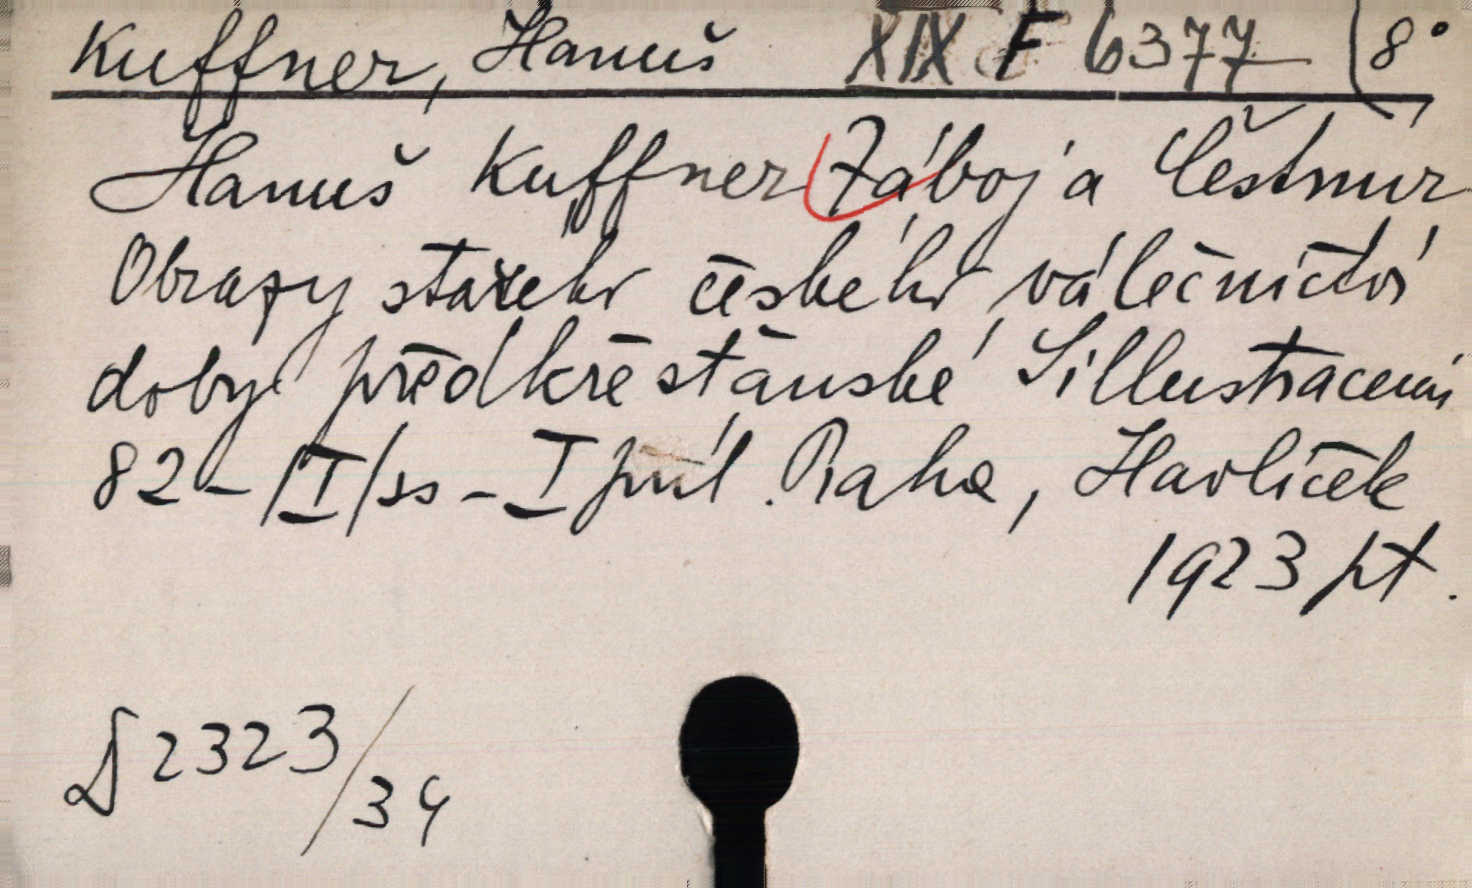 Kuffner, Hanuš XIX F 6377 8°
Hanuš Kuffner Záboj a Čestmír
Obrazy starého českého válečnictví
doby předkřesťanské S illustracemi
82 - /I/ ss - I příl. Praha, Havlíček
1923 pt.
D 2323/34